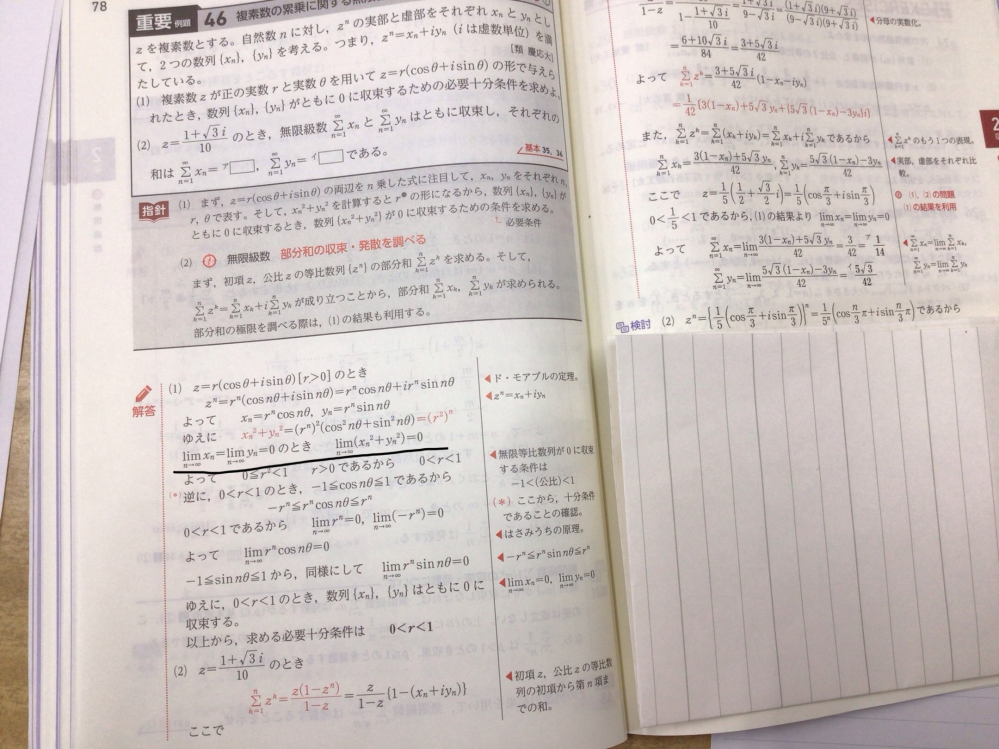 78
重要 例題 46 複素数の累乗に関する
zを複素数とする。自然数nに対し，zⁿの実部と虚部をそれぞれxₙとyₙとし
て，2つの数列{xₙ}，{yₙ}を考える。つまり，zⁿ=xₙ+iyₙ（iは虚数単位）を満
たしている。 [類 慶応大]
(1) 複素数zが正の実数rと実数θを用いてz=r(cosθ+isinθ)の形で与えら
れたとき，数列{xₙ}，{yₙ}がともに0に収束するための必要十分条件を求めよ。
(2) z=(1+√3i)/10 のとき，無限級数 Σ[n=1,∞]xₙ と Σ[n=1,∞]yₙ はともに収束し，それぞれの
和は Σ[n=1,∞]xₙ=ア□，Σ[n=1,∞]yₙ=イ□ である。
基本 35, 36
指針 (1) まず，z=r(cosθ+isinθ)の両辺をn乗した式に注目して，xₙ，yₙをそれぞれn，
r，θで表す。そして，xₙ²+yₙ²を計算するとr●の形になるから，数列{xₙ}，{yₙ}が
ともに0に収束するとき，数列{xₙ²+yₙ²}が0に収束するための条件を求める。
必要条件
(2) 無限級数 部分和の収束・発散を調べる
まず，初項z，公比zの等比数列{zⁿ}の部分和 Σ[k=1,n]zᵏ を求める。そして，
Σ[k=1,n]zᵏ=Σ[k=1,n]xₖ+iΣ[k=1,n]yₖ が成り立つことから，部分和 Σ[k=1,n]xₖ，Σ[k=1,n]yₖ が求められる。
部分和の極限を調べる際は，(1)の結果も利用する。
解答
(1) z=r(cosθ+isinθ)[r>0]のとき
zⁿ=rⁿ(cosnθ+isinnθ)=rⁿcosnθ+irⁿsinnθ
よって xₙ=rⁿcosnθ，yₙ=rⁿsinnθ
ゆえに xₙ²+yₙ²=(rⁿ)²(cos²nθ+sin²nθ)=(r²)ⁿ
lim[n→∞]xₙ=lim[n→∞]yₙ=0のとき lim[n→∞](xₙ²+yₙ²)=0
よって 0≦r²<1 r>0であるから 0<r<1
(*) 逆に，0<r<1のとき，-1≦cosnθ≦1であるから
-rⁿ≦rⁿcosnθ≦rⁿ
0<r<1であるから lim[n→∞]rⁿ=0，lim[n→∞](-rⁿ)=0
よって lim[n→∞]rⁿcosnθ=0
-1≦sinnθ≦1から，同様にして lim[n→∞]rⁿsinnθ=0
ゆえに，0<r<1のとき，数列{xₙ}，{yₙ}はともに0に
収束する。
以上から，求める必要十分条件は 0<r<1
(2) z=(1+√3i)/10 のとき
Σ[k=1,n]zᵏ=z(1-zⁿ)/(1-z)=z/(1-z){1-(xₙ+iyₙ)}
ここで
◀ド・モアブルの定理。
◀zⁿ=xₙ+iyₙ
◀無限等比数列が0に収束
する条件は
-1<(公比)<1
(*) ここから，十分条件
であることの確認。
◀はさみうちの原理。
◀-rⁿ≦rⁿsinnθ≦rⁿ
◀lim[n→∞]xₙ=0，lim[n→∞]yₙ=0
◀初項z，公比zの等比数
列の初項から第n項ま
での和。
◀分母の実数化。
=(6+10√3i)/84=(3+5√3i)/42
よって Σ[k=1,n]zᵏ=(3+5√3i)/42(1-xₙ-iyₙ)
=1/42{3(1-xₙ)+5√3yₙ+(5√3(1-xₙ)-3yₙ)i}
また，Σ[k=1,n]zᵏ=Σ[k=1,n](xₖ+iyₖ)=Σ[k=1,n]xₖ+iΣ[k=1,n]yₖ であるから
Σ[k=1,n]xₖ=(3(1-xₙ)+5√3yₙ)/42，Σ[k=1,n]yₖ=(5√3(1-xₙ)-3yₙ)/42
ここで z=1/5(1/2+√3/2 i)=1/5(cosπ/3+isinπ/3)
0<1/5<1であるから，(1)の結果より lim[n→∞]xₙ=lim[n→∞]yₙ=0
よって Σ[n=1,∞]xₙ=lim[n→∞](3(1-xₙ)+5√3yₙ)/42=3/42=ア1/14
Σ[n=1,∞]yₙ=lim[n→∞](5√3(1-xₙ)-3yₙ)/42=イ5√3/42
◀Σ[k=1,n]zᵏのもう1つの表現。
◀実部，虚部をそれぞれ比
較。
(1)，(2)の問題
(1)の結果を利用
◀Σ[n=1,∞]xₙ=lim[n→∞]Σ[k=1,n]xₖ，
Σ[n=1,∞]yₙ=lim[n→∞]Σ[k=1,n]yₖ
検討 (2) zⁿ={1/5(cosπ/3+isinπ/3)}ⁿ=1/5ⁿ(cos n/3π+isin n/3π)であるから
2